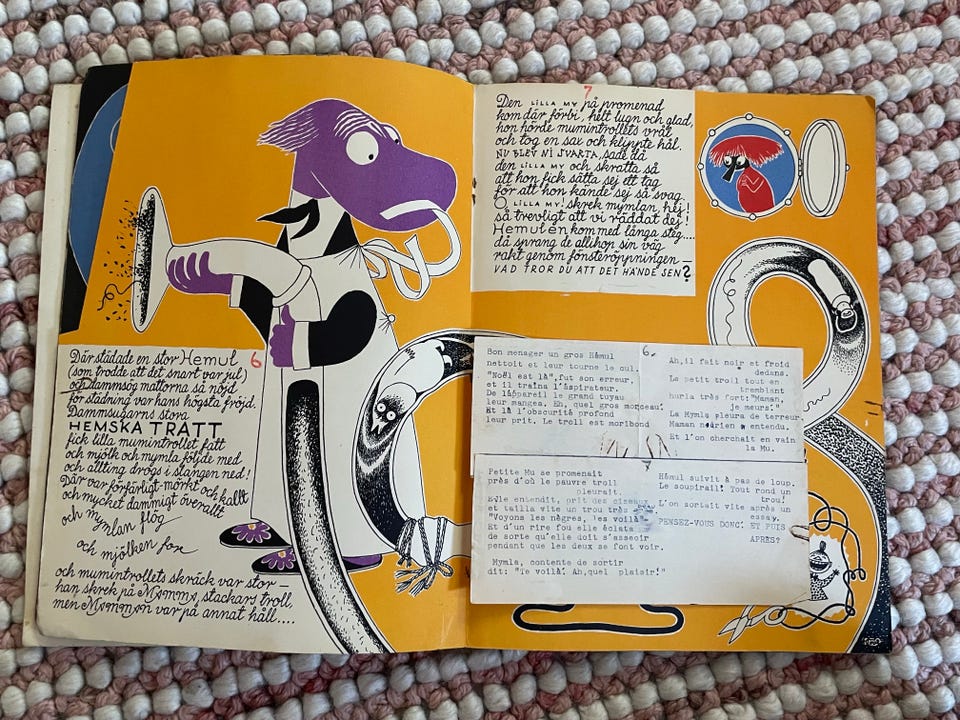 Där städade en stor Hemul
(som trodde att det snart var jul)
och dammsög mattorna så nöjd,
för städning var hans högsta fröjd.
Dammsugarns stora
HEMSKA TRATT
fick lilla mumintrollet fatt
och mjölk och mymla följde med
och allting drogs i slangen ned!
Där var förfärligt mörkt och kallt
och mycket dammigt överallt
och mymlan flög
och mjölken for
och mumintrollets skräck var stor —
han skrek på Mamma, stackars troll,
men Mamman var på annat håll....
6
7
Den LILLA MY på promenad
kom där förbi, helt lugn och glad,
hon hörde mumintrollets vrål
och tog en sax och klippte hål.
NU BLEV NI SVARTA, sade då
den LILLA MY och skratta så
att hon fick sätta sej ett tag
för att hon kände sej så svag.
O LILLA MY! skrek mymlan, hej!
så trevligt att vi räddat dej!
Hemulen kom med långa steg....
då sprang de allihop sin väg
rakt genom fönsteröppningen —
VAD TROR DU ATT DET HÄNDE SEN?
6.
Bon menager un gros Hémul
nettoit et leur tourne le cul.
"Noël est là", fut son erreur,
et il traîna l'aspirateur.
De l'appareil le grand tuyau
leur mangea. Eh, quel gros morceau.
Et là l'obscurité profond
leur prit. Le troll est moribond
Ah, il fait noir et froid
dedans.
Le petit troll tout en
tremblant
hurla très fort: "Maman,
je meurs."
La Mymla pleura de terreur
Maman n'a rien entendu.
Et l'on cherchait en vain
la Mu.
Petite Mu se promenait
près d'où le pauvre troll
pleurait.
Elle entendit, prit des ciseaux
et tailla vite un trou très
"Voyons les nègres, les voilà"
Et d'un rire fou elle éclata
de sorte qu'elle doit s'asseoir
pendant que les deux se font voir.
Mymla, contente de sortir
dit: "Te voilà. Ah, quel plaisir!"
Hémul suivit à pas de loup.
Le soupirail! Tout rond un
trou!
L'on sortait vite après un
essay.
PENSEZ-VOUS DONC. ET PUIS
APRÈS?